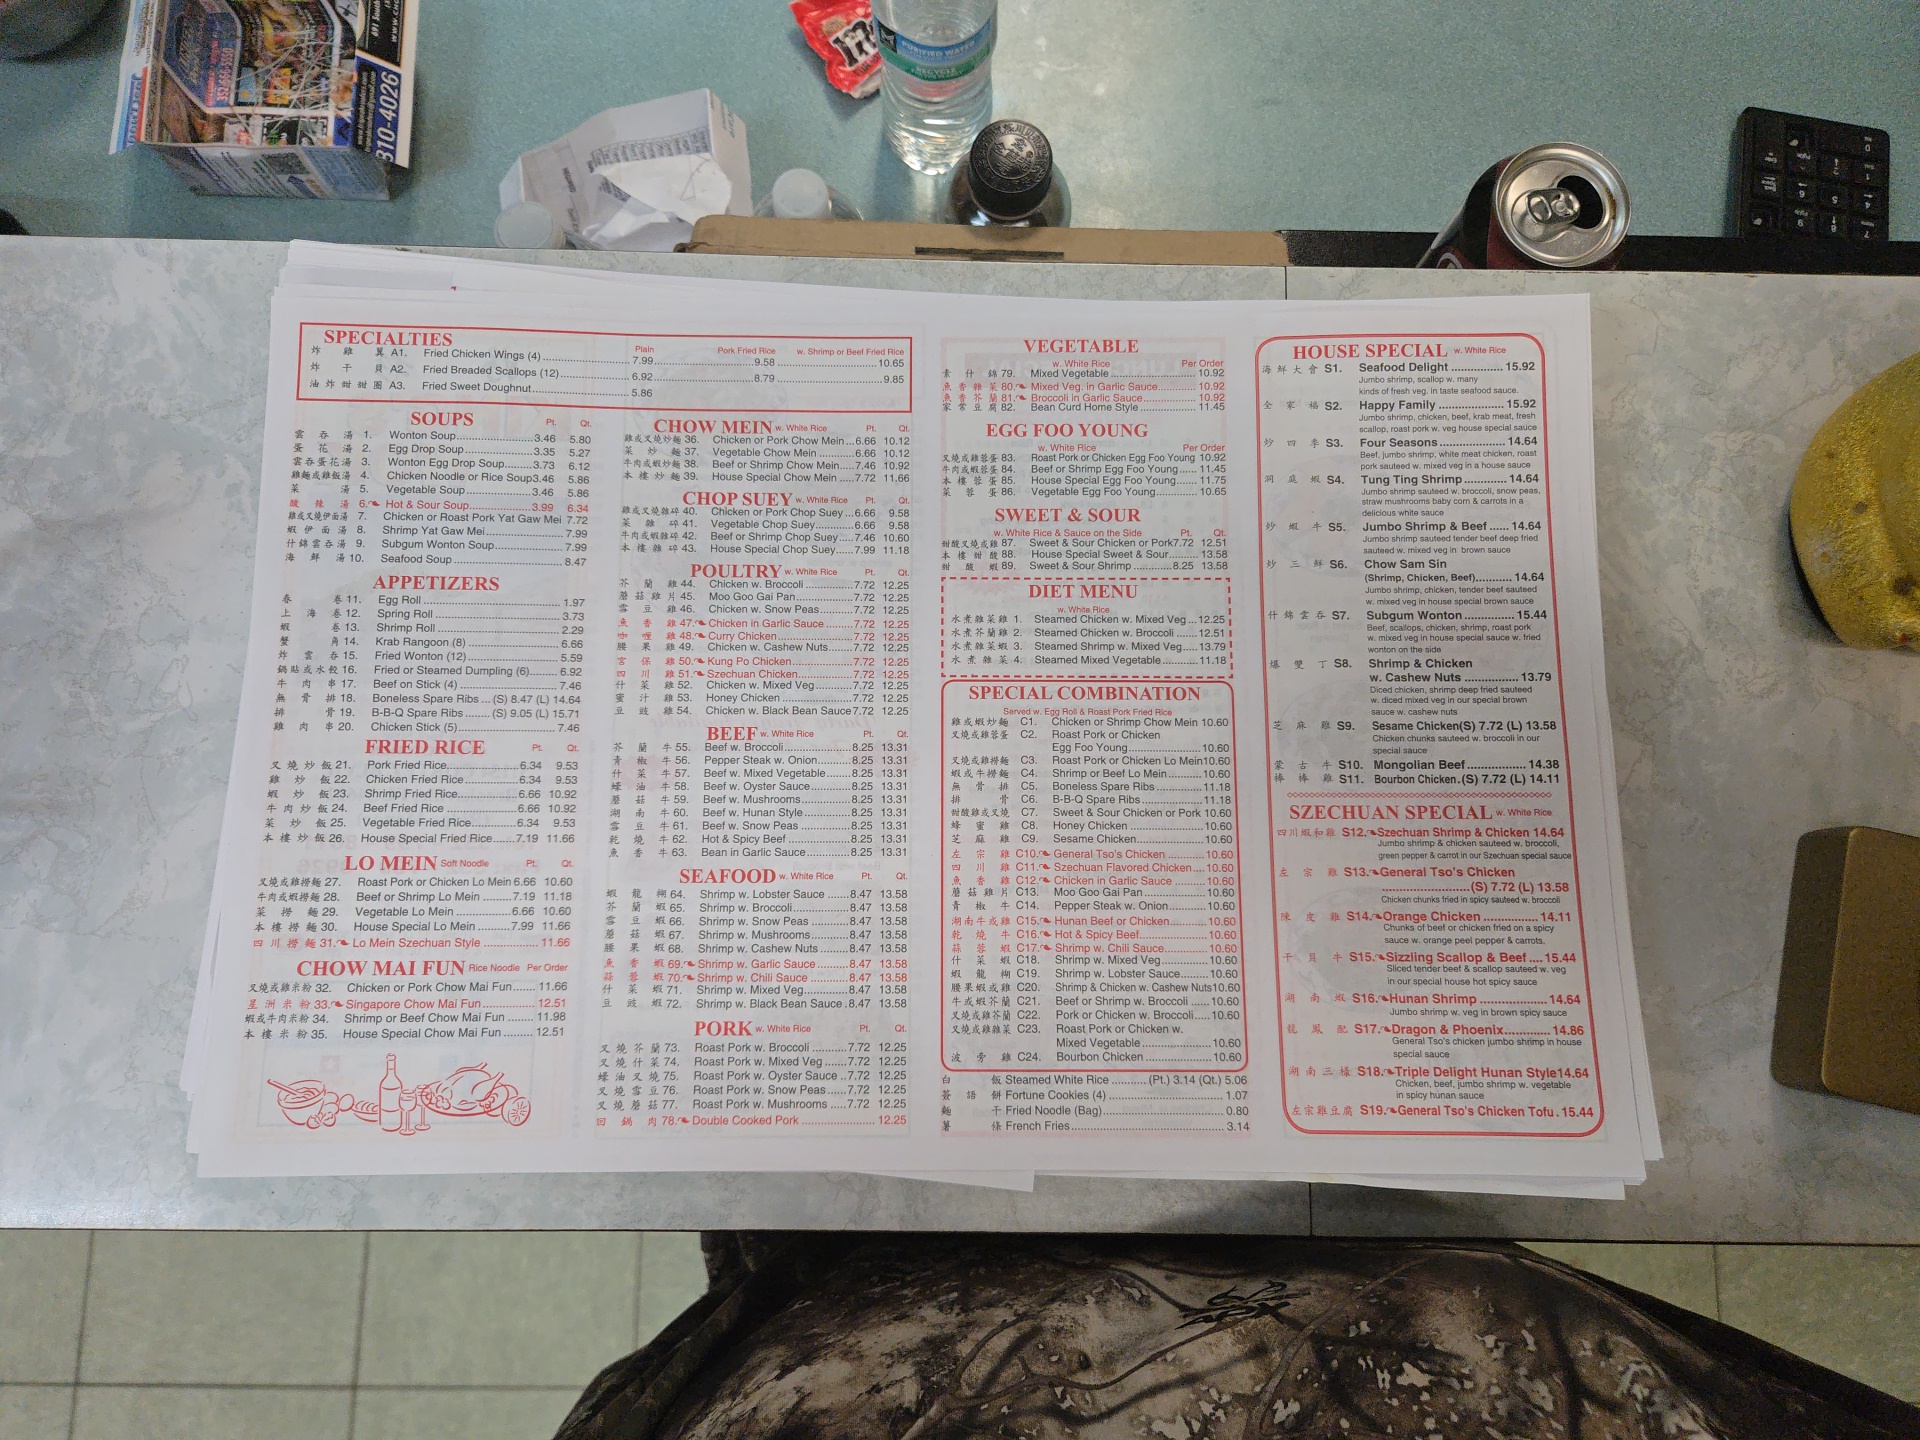 310-4026
PURIFIED WATER
RECYCLE
SPECIALTIES
Plain Pork Fried Rice w. Shrimp or Beef Fried Rice
炸雞翼 A1. Fried Chicken Wings (4) 7.99 9.58 10.65
炸干貝 A2. Fried Breaded Scallops (12) 6.92 8.79 9.85
油炸甜甜圈 A3. Fried Sweet Doughnut 5.86
SOUPS Pt. Qt.
雲吞湯 1. Wonton Soup 3.46 5.80
蛋花湯 2. Egg Drop Soup 3.35 5.27
雲吞蛋花湯 3. Wonton Egg Drop Soup 3.73 6.12
雞麵或雞飯湯 4. Chicken Noodle or Rice Soup 3.46 5.86
菜湯 5. Vegetable Soup 3.46 5.86
酸辣湯 6. Hot & Sour Soup 3.99 6.34
雞或叉燒伊面湯 7. Chicken or Roast Pork Yat Gaw Mei 7.72
蝦伊面湯 8. Shrimp Yat Gaw Mei 7.99
什錦雲吞湯 9. Subgum Wonton Soup 7.99
海鮮湯 10. Seafood Soup 8.47
APPETIZERS
春卷 11. Egg Roll 1.97
上海卷 12. Spring Roll 3.73
蝦卷 13. Shrimp Roll 2.29
蟹角 14. Krab Rangoon (8) 6.66
炸雲吞 15. Fried Wonton (12) 5.59
鍋貼或水餃 16. Fried or Steamed Dumpling (6) 6.92
牛肉串 17. Beef on Stick (4) 7.46
無骨排 18. Boneless Spare Ribs (S) 8.47 (L) 14.64
排骨 19. B-B-Q Spare Ribs (S) 9.05 (L) 15.71
雞肉串 20. Chicken Stick (5) 7.46
FRIED RICE Pt. Qt.
叉燒炒飯 21. Pork Fried Rice 6.34 9.53
雞炒飯 22. Chicken Fried Rice 6.34 9.53
蝦炒飯 23. Shrimp Fried Rice 6.66 10.92
牛肉炒飯 24. Beef Fried Rice 6.66 10.92
菜炒飯 25. Vegetable Fried Rice 6.34 9.53
本樓炒飯 26. House Special Fried Rice 7.19 11.66
LO MEIN Soft Noodle Pt. Qt.
叉燒或雞撈麵 27. Roast Pork or Chicken Lo Mein 6.66 10.60
牛肉或蝦撈麵 28. Beef or Shrimp Lo Mein 7.19 11.18
菜撈麵 29. Vegetable Lo Mein 6.66 10.60
本樓撈麵 30. House Special Lo Mein 7.99 11.66
四川撈麵 31. Lo Mein Szechuan Style 11.66
CHOW MAI FUN Rice Noodle Per Order
叉燒或雞米粉 32. Chicken or Pork Chow Mai Fun 11.66
星洲米粉 33. Singapore Chow Mai Fun 12.51
蝦或牛肉米粉 34. Shrimp or Beef Chow Mai Fun 11.98
本樓米粉 35. House Special Chow Mai Fun 12.51
CHOW MEIN w. White Rice Pt. Qt.
雞或叉燒炒麵 36. Chicken or Pork Chow Mein 6.66 10.12
菜炒麵 37. Vegetable Chow Mein 6.66 10.12
牛肉或蝦炒麵 38. Beef or Shrimp Chow Mein 7.46 10.92
本樓炒麵 39. House Special Chow Mein 7.72 11.66
CHOP SUEY w. White Rice Pt. Qt.
雞或叉燒雜碎 40. Chicken or Pork Chop Suey 6.66 9.58
菜雜碎 41. Vegetable Chop Suey 6.66 9.58
牛肉或蝦雜碎 42. Beef or Shrimp Chop Suey 7.46 10.60
本樓雜碎 43. House Special Chop Suey 7.99 11.18
POULTRY w. White Rice Pt. Qt.
芥蘭雞 44. Chicken w. Broccoli 7.72 12.25
蘑菇雞片 45. Moo Goo Gai Pan 7.72 12.25
雪豆雞 46. Chicken w. Snow Peas 7.72 12.25
魚香雞 47. Chicken in Garlic Sauce 7.72 12.25
咖喱雞 48. Curry Chicken 7.72 12.25
腰果雞 49. Chicken w. Cashew Nuts 7.72 12.25
宮保雞 50. Kung Po Chicken 7.72 12.25
四川雞 51. Szechuan Chicken 7.72 12.25
什菜雞 52. Chicken w. Mixed Veg 7.72 12.25
蜜汁雞 53. Honey Chicken 7.72 12.25
豆豉雞 54. Chicken w. Black Bean Sauce 7.72 12.25
BEEF w. White Rice Pt. Qt.
芥蘭牛 55. Beef w. Broccoli 8.25 13.31
青椒牛 56. Pepper Steak w. Onion 8.25 13.31
什菜牛 57. Beef w. Mixed Vegetable 8.25 13.31
蠔油牛 58. Beef w. Oyster Sauce 8.25 13.31
蘑菇牛 59. Beef w. Mushrooms 8.25 13.31
湖南牛 60. Beef w. Hunan Style 8.25 13.31
雪豆牛 61. Beef w. Snow Peas 8.25 13.31
乾燒牛 62. Hot & Spicy Beef 8.25 13.31
魚香牛 63. Bean in Garlic Sauce 8.25 13.31
SEAFOOD w. White Rice Pt. Qt.
蝦龍糊 64. Shrimp w. Lobster Sauce 8.47 13.58
芥蘭蝦 65. Shrimp w. Broccoli 8.47 13.58
雪豆蝦 66. Shrimp w. Snow Peas 8.47 13.58
蘑菇蝦 67. Shrimp w. Mushrooms 8.47 13.58
腰果蝦 68. Shrimp w. Cashew Nuts 8.47 13.58
魚香蝦 69. Shrimp w. Garlic Sauce 8.47 13.58
蒜蓉蝦 70. Shrimp w. Chili Sauce 8.47 13.58
什菜蝦 71. Shrimp w. Mixed Veg 8.47 13.58
豆豉蝦 72. Shrimp w. Black Bean Sauce 8.47 13.58
PORK w. White Rice Pt. Qt.
叉燒芥蘭 73. Roast Pork w. Broccoli 7.72 12.25
叉燒什菜 74. Roast Pork w. Mixed Veg 7.72 12.25
蠔油叉燒 75. Roast Pork w. Oyster Sauce 7.72 12.25
叉燒雪豆 76. Roast Pork w. Snow Peas 7.72 12.25
叉燒蘑菇 77. Roast Pork w. Mushrooms 7.72 12.25
回鍋肉 78. Double Cooked Pork 12.25
VEGETABLE
w. White Rice Per Order
素什錦 79. Mixed Vegetable 10.92
魚香雜菜 80. Mixed Veg. in Garlic Sauce 10.92
魚香芥蘭 81. Broccoli in Garlic Sauce 10.92
家常豆腐 82. Bean Curd Home Style 11.45
EGG FOO YOUNG
w. White Rice Per Order
叉燒或雞蓉蛋 83. Roast Pork or Chicken Egg Foo Young 10.92
牛肉或蝦蓉蛋 84. Beef or Shrimp Egg Foo Young 11.45
本樓蓉蛋 85. House Special Egg Foo Young 11.75
菜蓉蛋 86. Vegetable Egg Foo Young 10.65
SWEET & SOUR
w. White Rice & Sauce on the Side Pt. Qt.
甜酸叉或雞 87. Sweet & Sour Chicken or Pork 7.72 12.51
本樓甜酸 88. House Special Sweet & Sour 13.58
甜酸蝦 89. Sweet & Sour Shrimp 8.25 13.58
DIET MENU
w. White Rice
水煮雜菜雞 1. Steamed Chicken w. Mixed Veg 12.25
水煮芥蘭雞 2. Steamed Chicken w. Broccoli 12.51
水煮雜菜蝦 3. Steamed Shrimp w. Mixed Veg 13.79
水煮雜菜 4. Steamed Mixed Vegetable 11.18
SPECIAL COMBINATION
Served w. Egg Roll & Roast Pork Fried Rice
雞或蝦炒麵 C1. Chicken or Shrimp Chow Mein 10.60
叉燒或雞蓉蛋 C2. Roast Pork or Chicken
Egg Foo Young 10.60
叉燒或雞撈麵 C3. Roast Pork or Chicken Lo Mein 10.60
蝦或牛撈麵 C4. Shrimp or Beef Lo Mein 10.60
無骨排 C5. Boneless Spare Ribs 11.18
排骨 C6. B-B-Q Spare Ribs 11.18
甜酸雞或叉 C7. Sweet & Sour Chicken or Pork 10.60
蜂蜜雞 C8. Honey Chicken 10.60
芝麻雞 C9. Sesame Chicken 10.60
左宗雞 C10. General Tso's Chicken 10.60
四川雞 C11. Szechuan Flavored Chicken 10.60
魚香雞 C12. Chicken in Garlic Sauce 10.60
蘑菇雞片 C13. Moo Goo Gai Pan 10.60
青椒牛 C14. Pepper Steak w. Onion 10.60
湖南牛或雞 C15. Hunan Beef or Chicken 10.60
乾燒牛 C16. Hot & Spicy Beef 10.60
蒜蓉蝦 C17. Shrimp w. Chili Sauce 10.60
什菜蝦 C18. Shrimp w. Mixed Veg 10.60
蝦龍糊 C19. Shrimp w. Lobster Sauce 10.60
腰果蝦或雞 C20. Shrimp & Chicken w. Cashew Nuts 10.60
牛或蝦芥蘭 C21. Beef or Shrimp w. Broccoli 10.60
叉燒或雞芥蘭 C22. Pork or Chicken w. Broccoli 10.60
叉燒或雞雜菜 C23. Roast Pork or Chicken w.
Mixed Vegetable 10.60
波旁雞 C24. Bourbon Chicken 10.60
白飯 Steamed White Rice (Pt.) 3.14 (Qt.) 5.06
簽語餅 Fortune Cookies (4) 1.07
麵干 Fried Noodle (Bag) 0.80
薯條 French Fries 3.14
HOUSE SPECIAL w. White Rice
海鮮大會 S1. Seafood Delight 15.92
Jumbo shrimp, scallop w. many
kinds of fresh veg. in taste seafood sauce.
全家福 S2. Happy Family 15.92
Jumbo shrimp, chicken, beef, krab meat, fresh
scallop, roast pork w. veg house special sauce
炒四季 S3. Four Seasons 14.64
Beef, jumbo shrimp, white meat chicken, roast
pork sauteed w. mixed veg in a house sauce
洞庭蝦 S4. Tung Ting Shrimp 14.64
Jumbo shrimp sauteed w. broccoli, snow peas,
straw mushrooms baby corn & carrots in a
delicious white sauce
炒蝦牛 S5. Jumbo Shrimp & Beef 14.64
Jumbo shrimp sauteed tender beef deep fried
sauteed w. mixed veg in brown sauce
炒三鮮 S6. Chow Sam Sin
(Shrimp, Chicken, Beef) 14.64
Jumbo shrimp, chicken, tender beef sauteed
w. mixed veg in house special brown sauce
什錦雲吞 S7. Subgum Wonton 15.44
Beef, scallops, chicken, shrimp, roast pork
w. mixed veg in house special sauce w. fried
wonton on the side
爆雙丁 S8. Shrimp & Chicken
w. Cashew Nuts 13.79
Diced chicken, shrimp deep fried sauteed
w. diced mixed veg in our special brown
sauce w. cashew nuts
芝麻雞 S9. Sesame Chicken (S) 7.72 (L) 13.58
Chicken chunks sauteed w. broccoli in our
special sauce
蒙古牛 S10. Mongolian Beef 14.38
棒棒雞 S11. Bourbon Chicken (S) 7.72 (L) 14.11
SZECHUAN SPECIAL w. White Rice
四川蝦和雞 S12. Szechuan Shrimp & Chicken 14.64
Jumbo shrimp & chicken sauteed w. broccoli,
green pepper & carrot in our Szechuan special sauce
左宗雞 S13. General Tso's Chicken
(S) 7.72 (L) 13.58
Chicken chunks fried in spicy sauteed w. broccoli
陳皮雞 S14. Orange Chicken 14.11
Chunks of beef or chicken fried on a spicy
sauce w. orange peel pepper & carrots.
干貝牛 S15. Sizzling Scallop & Beef 15.44
Sliced tender beef & scallop sauteed w. veg
in our special house hot spicy sauce
湖南蝦 S16. Hunan Shrimp 14.64
Jumbo shrimp w. veg in brown spicy sauce
龍鳳配 S17. Dragon & Phoenix 14.86
General Tso's chicken jumbo shrimp in house
special sauce
湖南三樣 S18. Triple Delight Hunan Style 14.64
Chicken, beef, jumbo shrimp w. vegetable
in spicy hunan sauce
左宗雞豆腐 S19. General Tso's Chicken Tofu 15.44